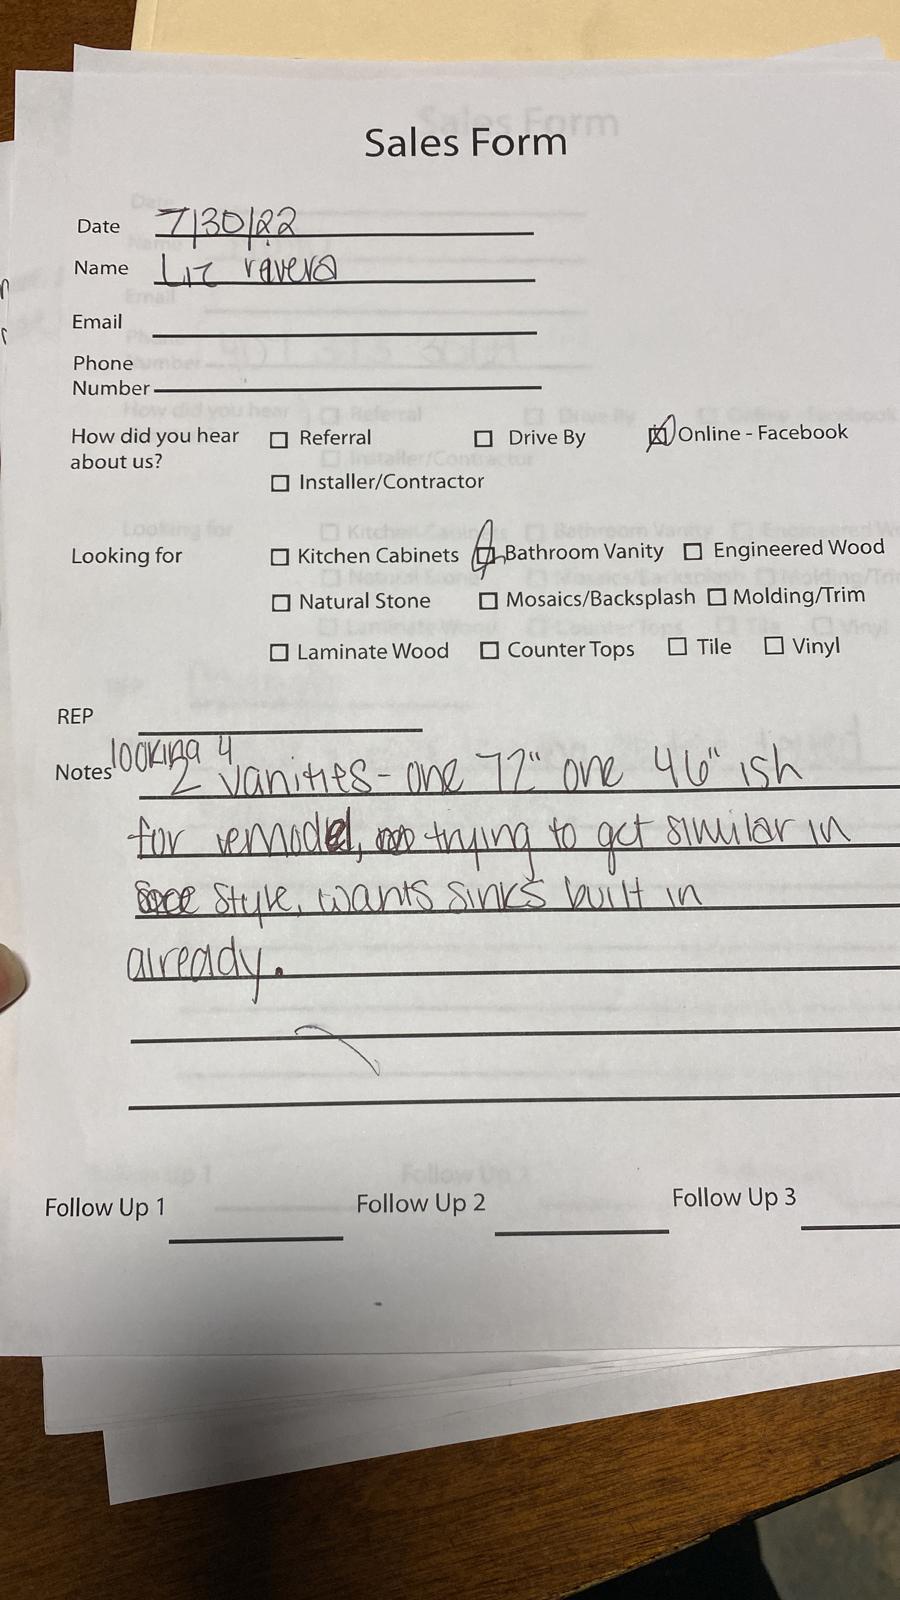 Sales Form
Date 7/30/22
Name Liz ravera
Email
Phone
Number
How did you hear Referral Drive By Online - Facebook
about us?
Installer/Contractor
Looking for Kitchen Cabinets Bathroom Vanity Engineered Wood
Natural Stone Mosaics/Backsplash Molding/Trim
Laminate Wood Counter Tops Tile Vinyl
REP
looking 4
Notes 2 vanities - one 72" one 46" ish
for remodel, trying to get similar in
style, wants sinks built in
already.
Follow Up 1 Follow Up 2 Follow Up 3